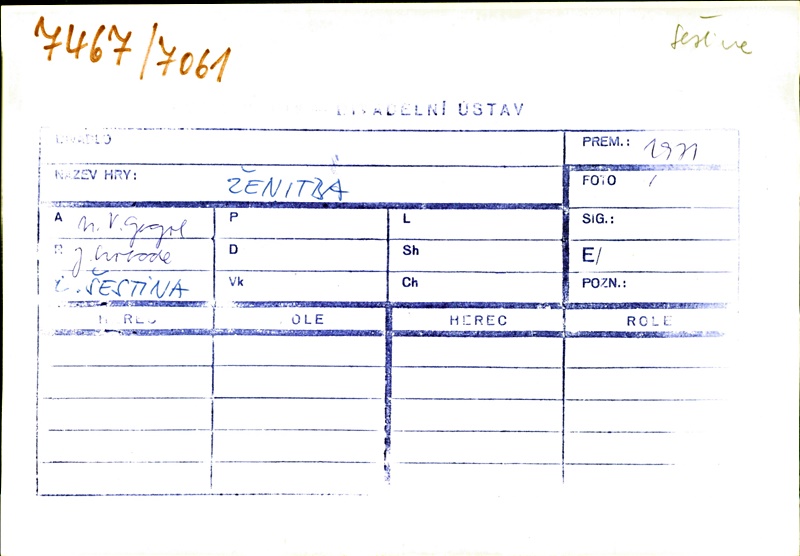 7467/7061
Šeština
DIVADELNÍ ÚSTAV
DIVADLO
PREM.: 1971
NÁZEV HRY: ŽENITBA
FOTO /
A N. V. Gogol
P
L
SIG.:
R J. Svoboda
D
Sh
E/
ŠESTINA
Vk
Ch
POZN.:
HEREC ROLE HEREC ROLE